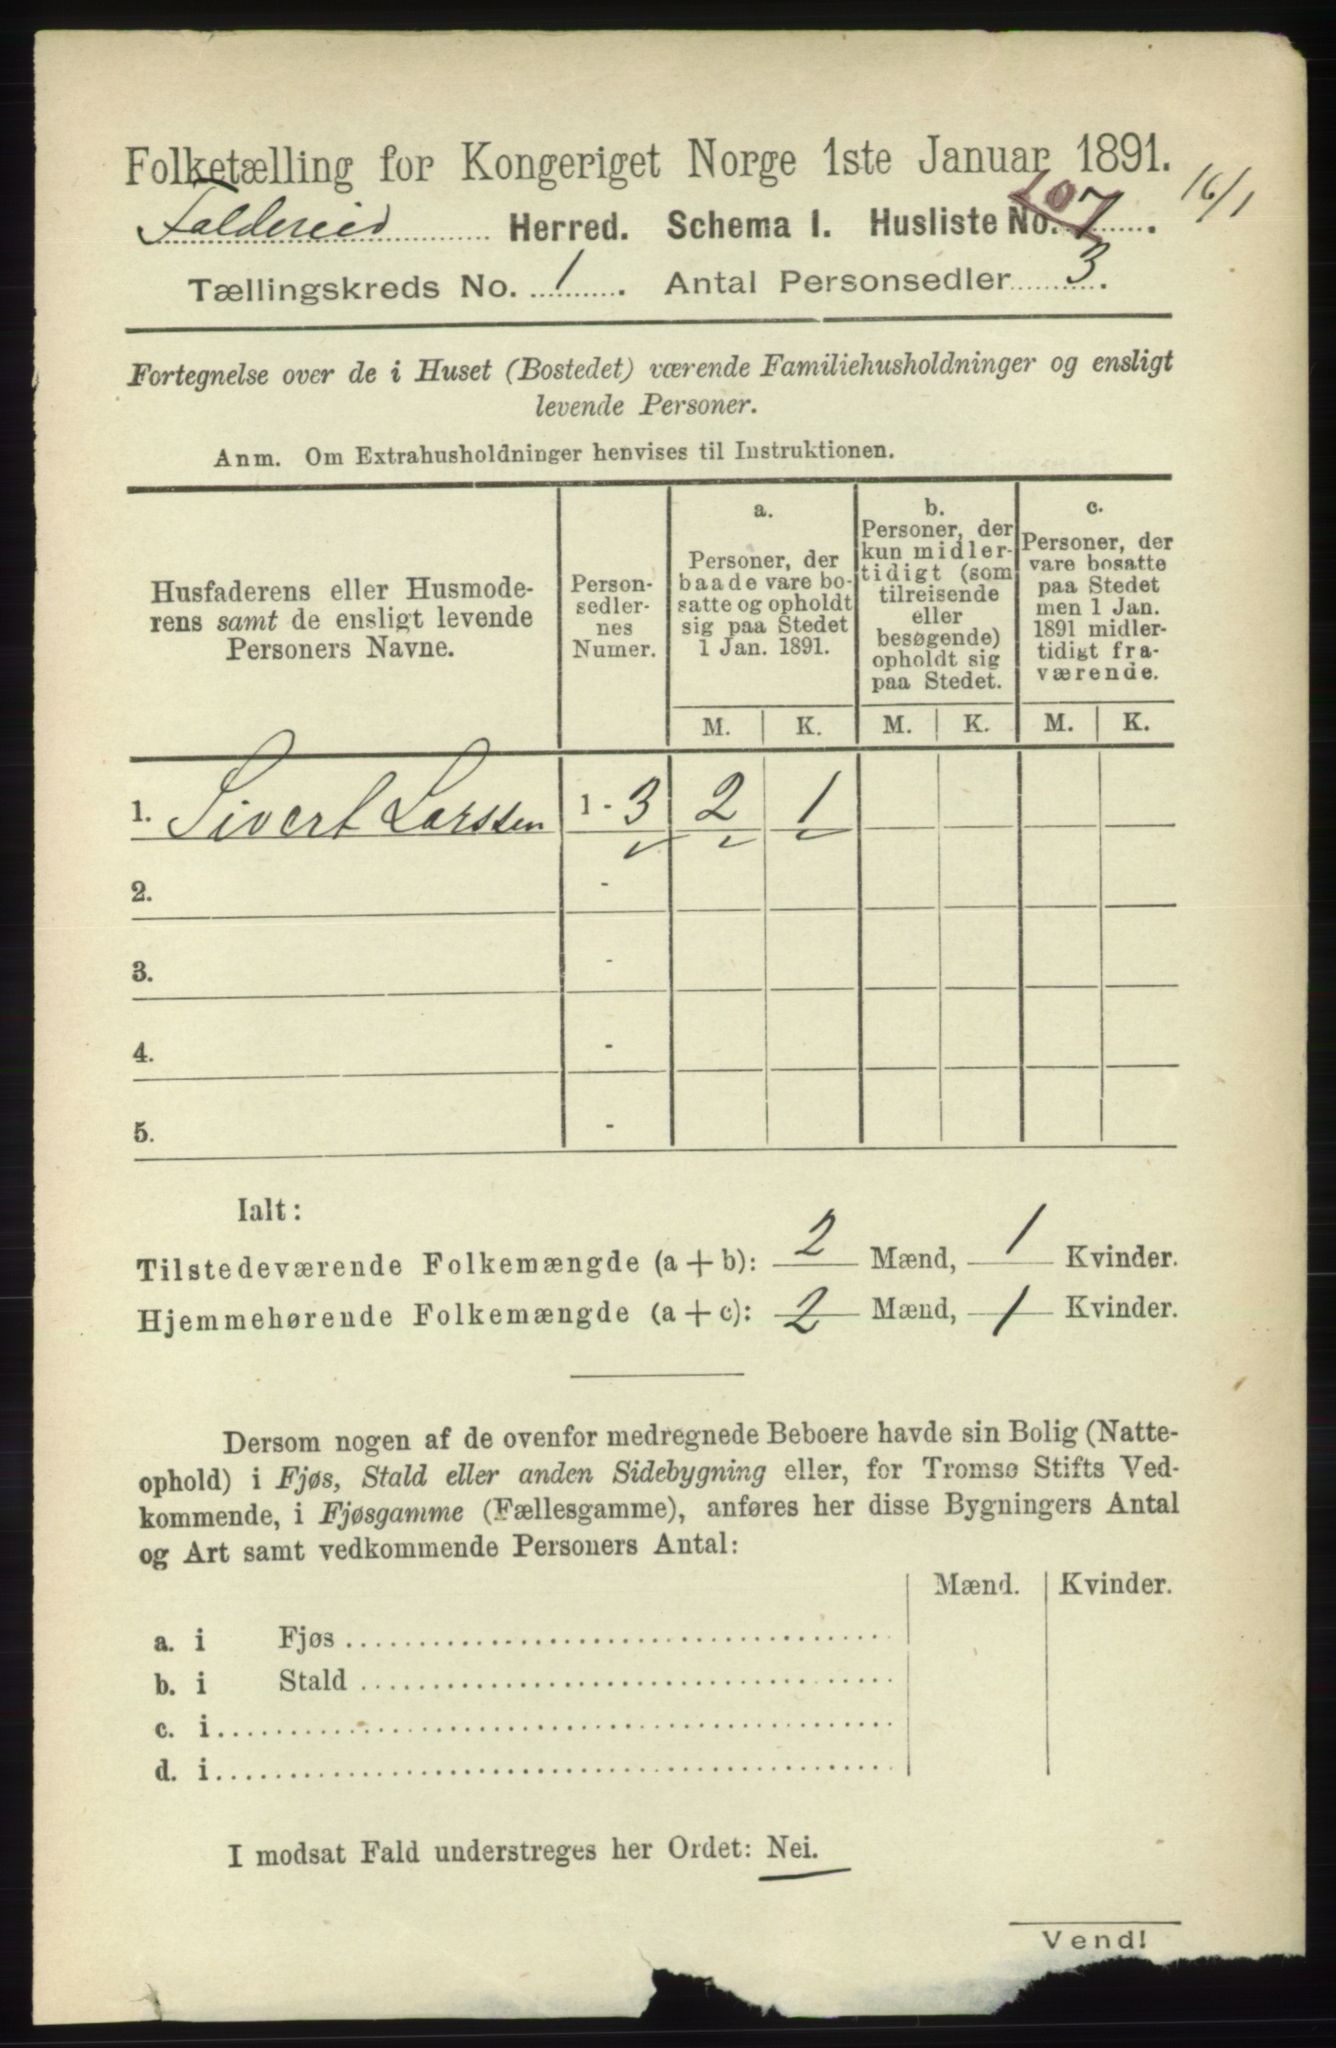 Folketælling for Kongeriget Norge 1ste Januar 1891.
16/1
Foldereid Herred. Schema I. Husliste No. 107.
Tællingskreds No. 1. Antal Personsedler 3.
Fortegnelse over de i Huset (Bostedet) værende Familiehusholdninger og ensligt
levende Personer.
Anm. Om Extrahusholdninger henvises til Instruktionen.
Husfaderens eller Husmode-
rens samt de ensligt levende
Personers Navne.
Person-
sedler-
nes
Numer.
a.
Personer, der
baade vare bo-
satte og opholdt
sig paa Stedet
1 Jan. 1891.
b.
Personer, der
kun midler-
tidigt (som
tilreisende
eller
besøgende)
opholdt sig
paa Stedet.
c.
Personer, der
vare bosatte
paa Stedet
men 1 Jan.
1891 midler-
tidigt fra-
værende.
M. K. M. K. M. K.
1. Sivert Larssen 1 - 3 2 1
2. -
3. -
4. -
5. -
Ialt:
Tilstedeværende Folkemængde (a + b): 2 Mænd, 1 Kvinder.
Hjemmehørende Folkemængde (a + c): 2 Mænd, 1 Kvinder.
Dersom nogen af de ovenfor medregnede Beboere havde sin Bolig (Natte-
ophold) i Fjøs, Stald eller anden Sidebygning eller, for Tromsø Stifts Ved-
kommende, i Fjøsgamme (Fællesgamme), anføres her disse Bygningers Antal
og Art samt vedkommende Personers Antal:
Mænd. Kvinder.
a. i Fjøs
b. i Stald
c. i
d. i
I modsat Fald understreges her Ordet: Nei.
Vend!